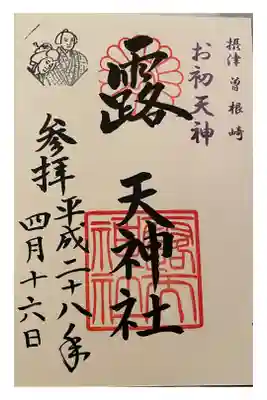 摂津 曽根崎
お初天神
露 天神社
参拝
平成二十八年
四月十六日